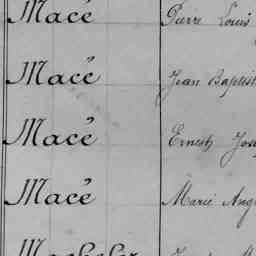 Macé Pierre Louis
Macé Jean Baptist
Macé Ernest Jos
Macé Marie Ang